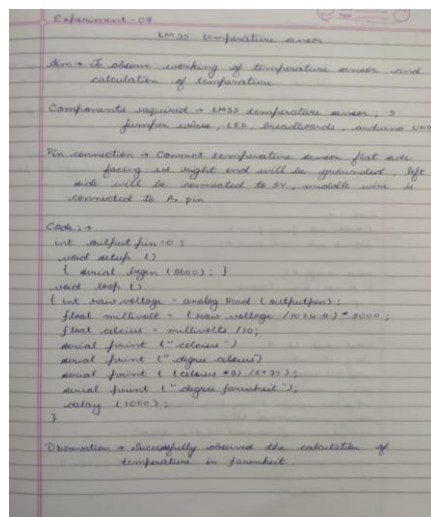 Experiment - 09
LM35 temperature sensor
Aim → To observe working of temperature sensor and
calculation of temperature
Components required → LM35 temperature sensor, 3
jumper wires, LED, breadboards, arduino UNO
Pin connection → Connect temperature sensor flat side
facing us right end will be grounded, left
side will be connected to 5V, middle wire is
connected to A0 pin
Code : →
int output pin = 0 ;
void setup ()
{ serial begin (9600) ; }
void loop ()
{ int raw voltage = analog Read ( outputpin) ;
float millivolt = ( raw voltage / 1024.0 ) * 5000 ;
float celcius = millivolts / 10 ;
serial print (" celcius ")
serial print (" degree celcius")
serial print ( ( celcius * 9) / 5 + 32) ;
serial print (" degree farenheit ") ;
delay (1000) ;
}
Observation → Successfully observed the calculation of
temperature in farenheit